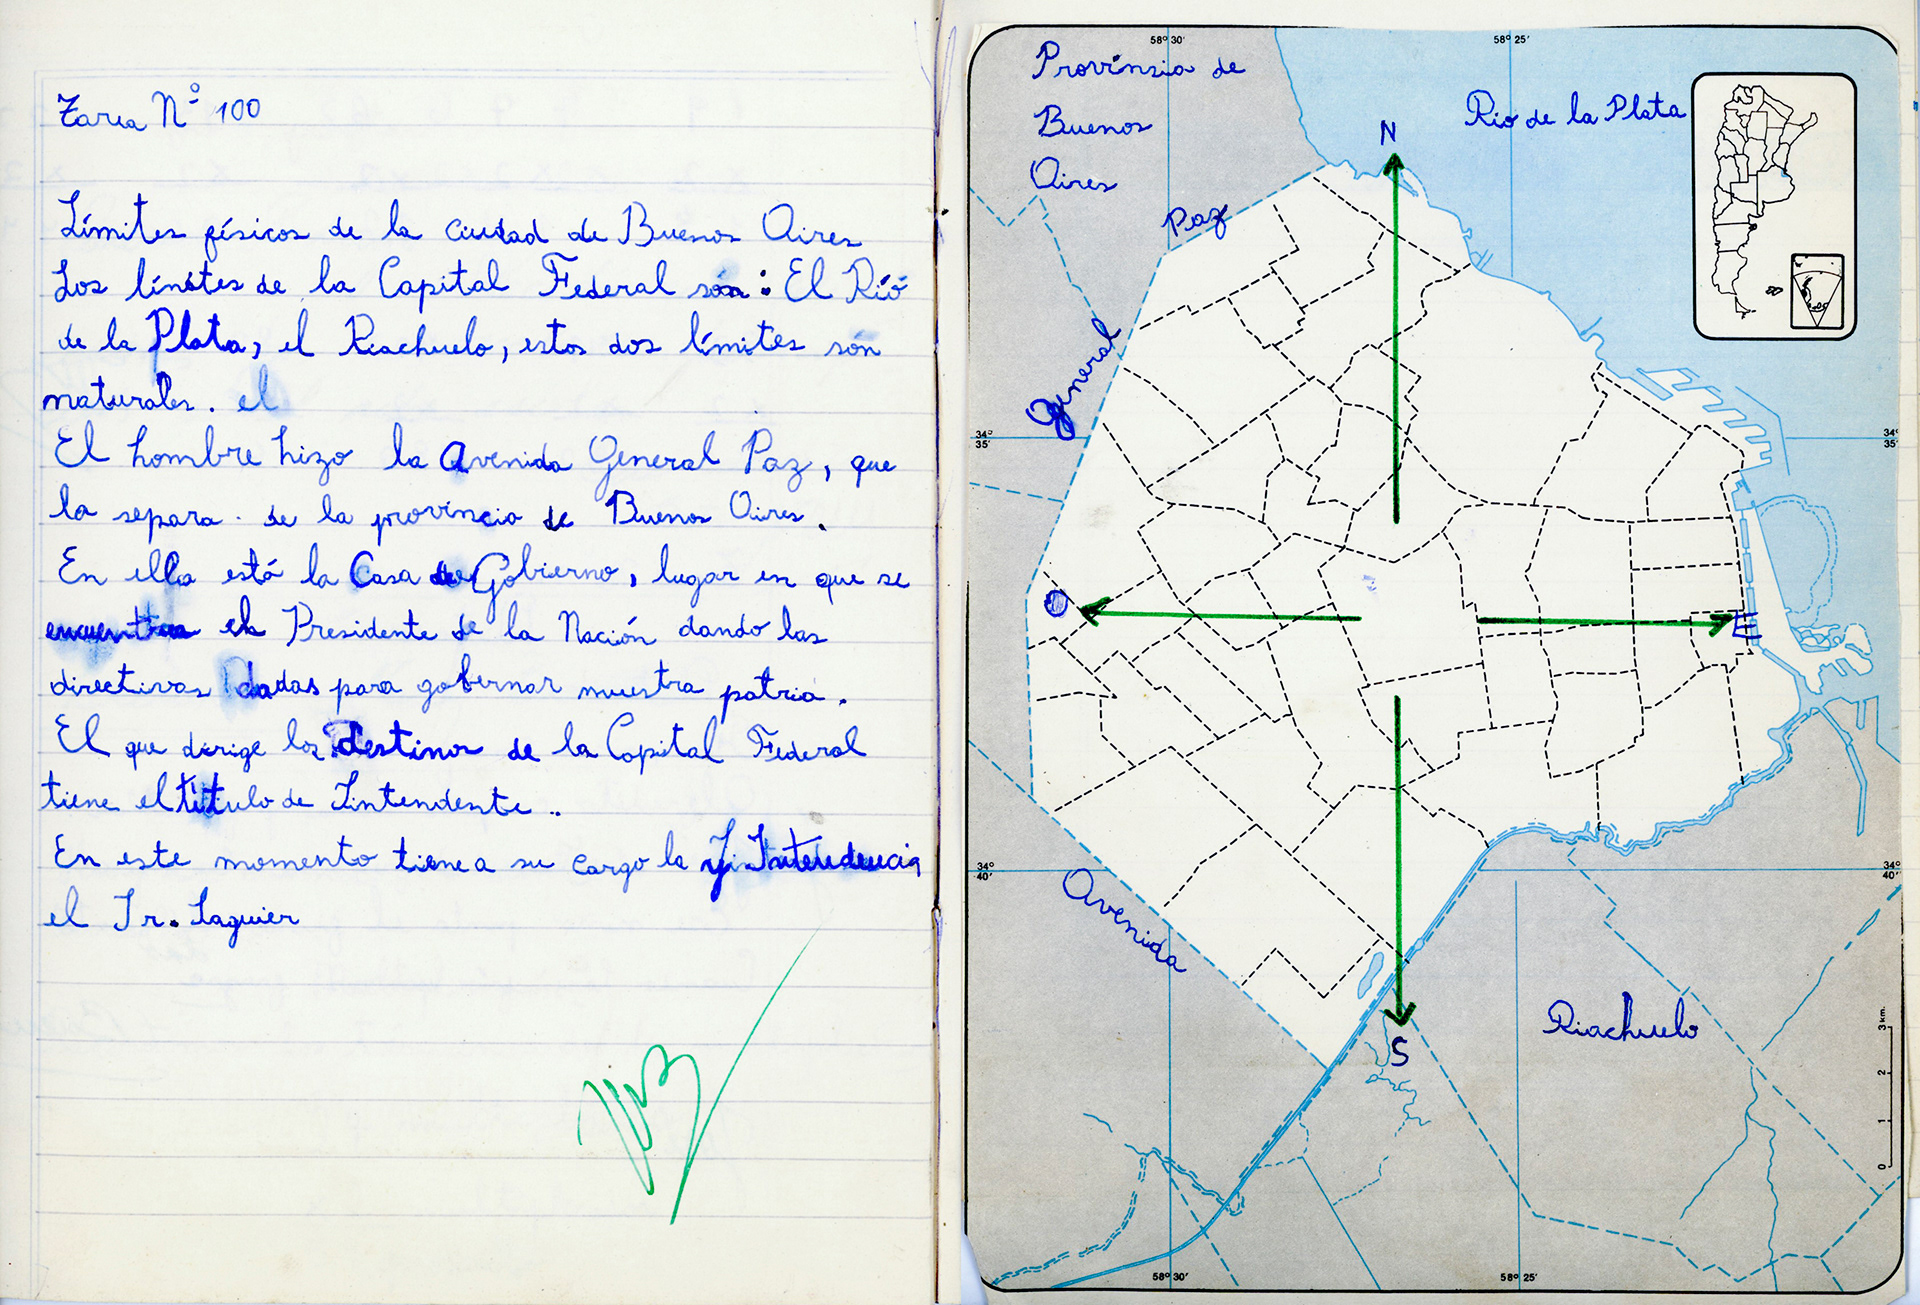 Tarea Nº 100
Límites físicos de la ciudad de Buenos Aires
Los límites de la Capital Federal són: El Río
de la Plata, el Riachuelo, estos dos límites són
naturales. el
El hombre hizo la Avenida General Paz, que
la separa. de la provincia de Buenos Aires.
En ella está la Casa de Gobierno, lugar en que se
encuentra el Presidente de la Nación dando las
directivas dadas para gobernar nuestra patria.
El que dirige los destinos de la Capital Federal
tiene el título de Intendente..
En este momento tiene a su cargo la Intendencia
el Sr. Saguier
58º 30'
58º 25'
Provínsia de
Buenos
Aires
Río de la Plata
N
Paz
General
34º
35'
34º
35'
O
E
34º
40'
34º
40'
Avenida
Riachuelo
S
3 km.
2
1
0
58º 30'
58º 25'